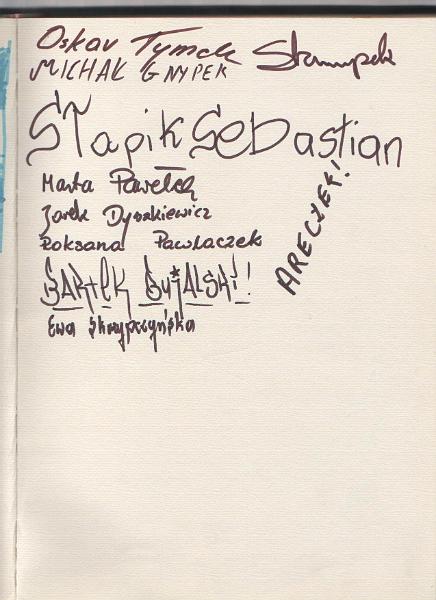 Oskar Tymek
MICHAŁ GNYPEK
STapik SEBastian
Marta Pawełek
Jarek Dyszkiewicz
Roksana Pawlaczek
ARECZEK!
BARtEK GUJALSKI!
Ewa Skrzypczyńska